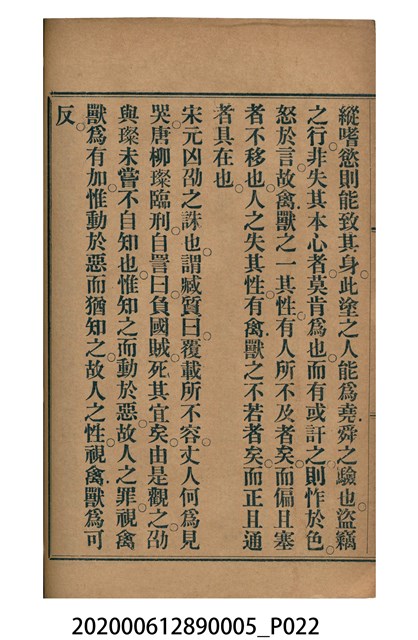 縱嗜慾則能致其身此塗之人能為堯舜之驗也盜竊
之行非失其本心者莫肯為也而有或訐之則怍於色
怒於言故禽獸之一其性有人所不及者矣而偏且塞
者不移也人之失其性有禽獸之不若者矣而正且通
者具在也
宋元凶劭之誅也謂臧質曰覆載所不容丈人何為見
哭唐柳璨臨刑自詈曰負國賊死其宜矣由是觀之劭
與璨未嘗不自知也惟知之而動於惡故人之罪視禽
獸為有加惟動於惡而猶知之故人之性視禽獸為可
反
202000612890005_P022